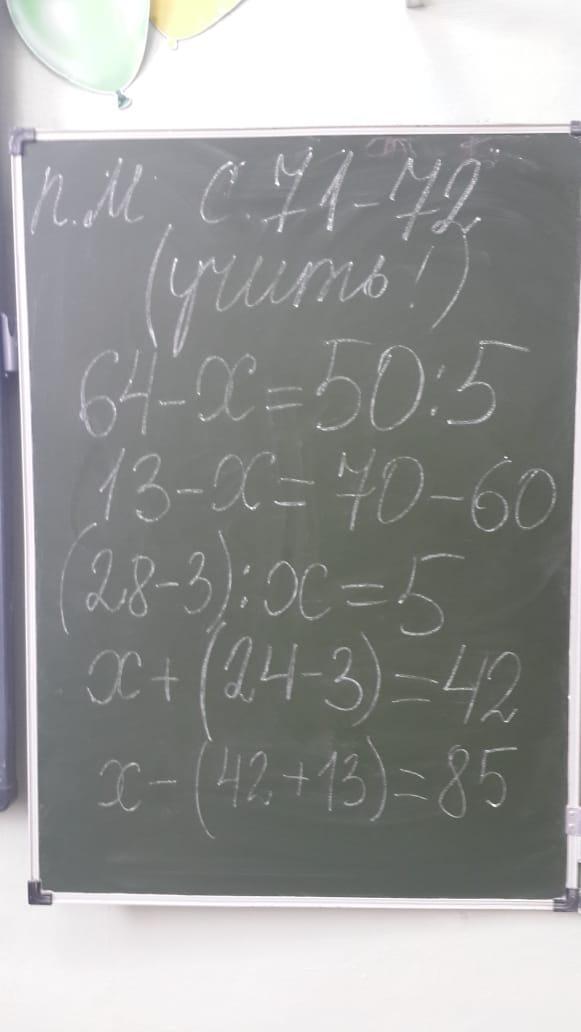 п.М. с.71-72
(учить!)
64-x=50:5
13-x=70-60
(28-3):x=5
x+(24-3)=42
x-(42+13)=85